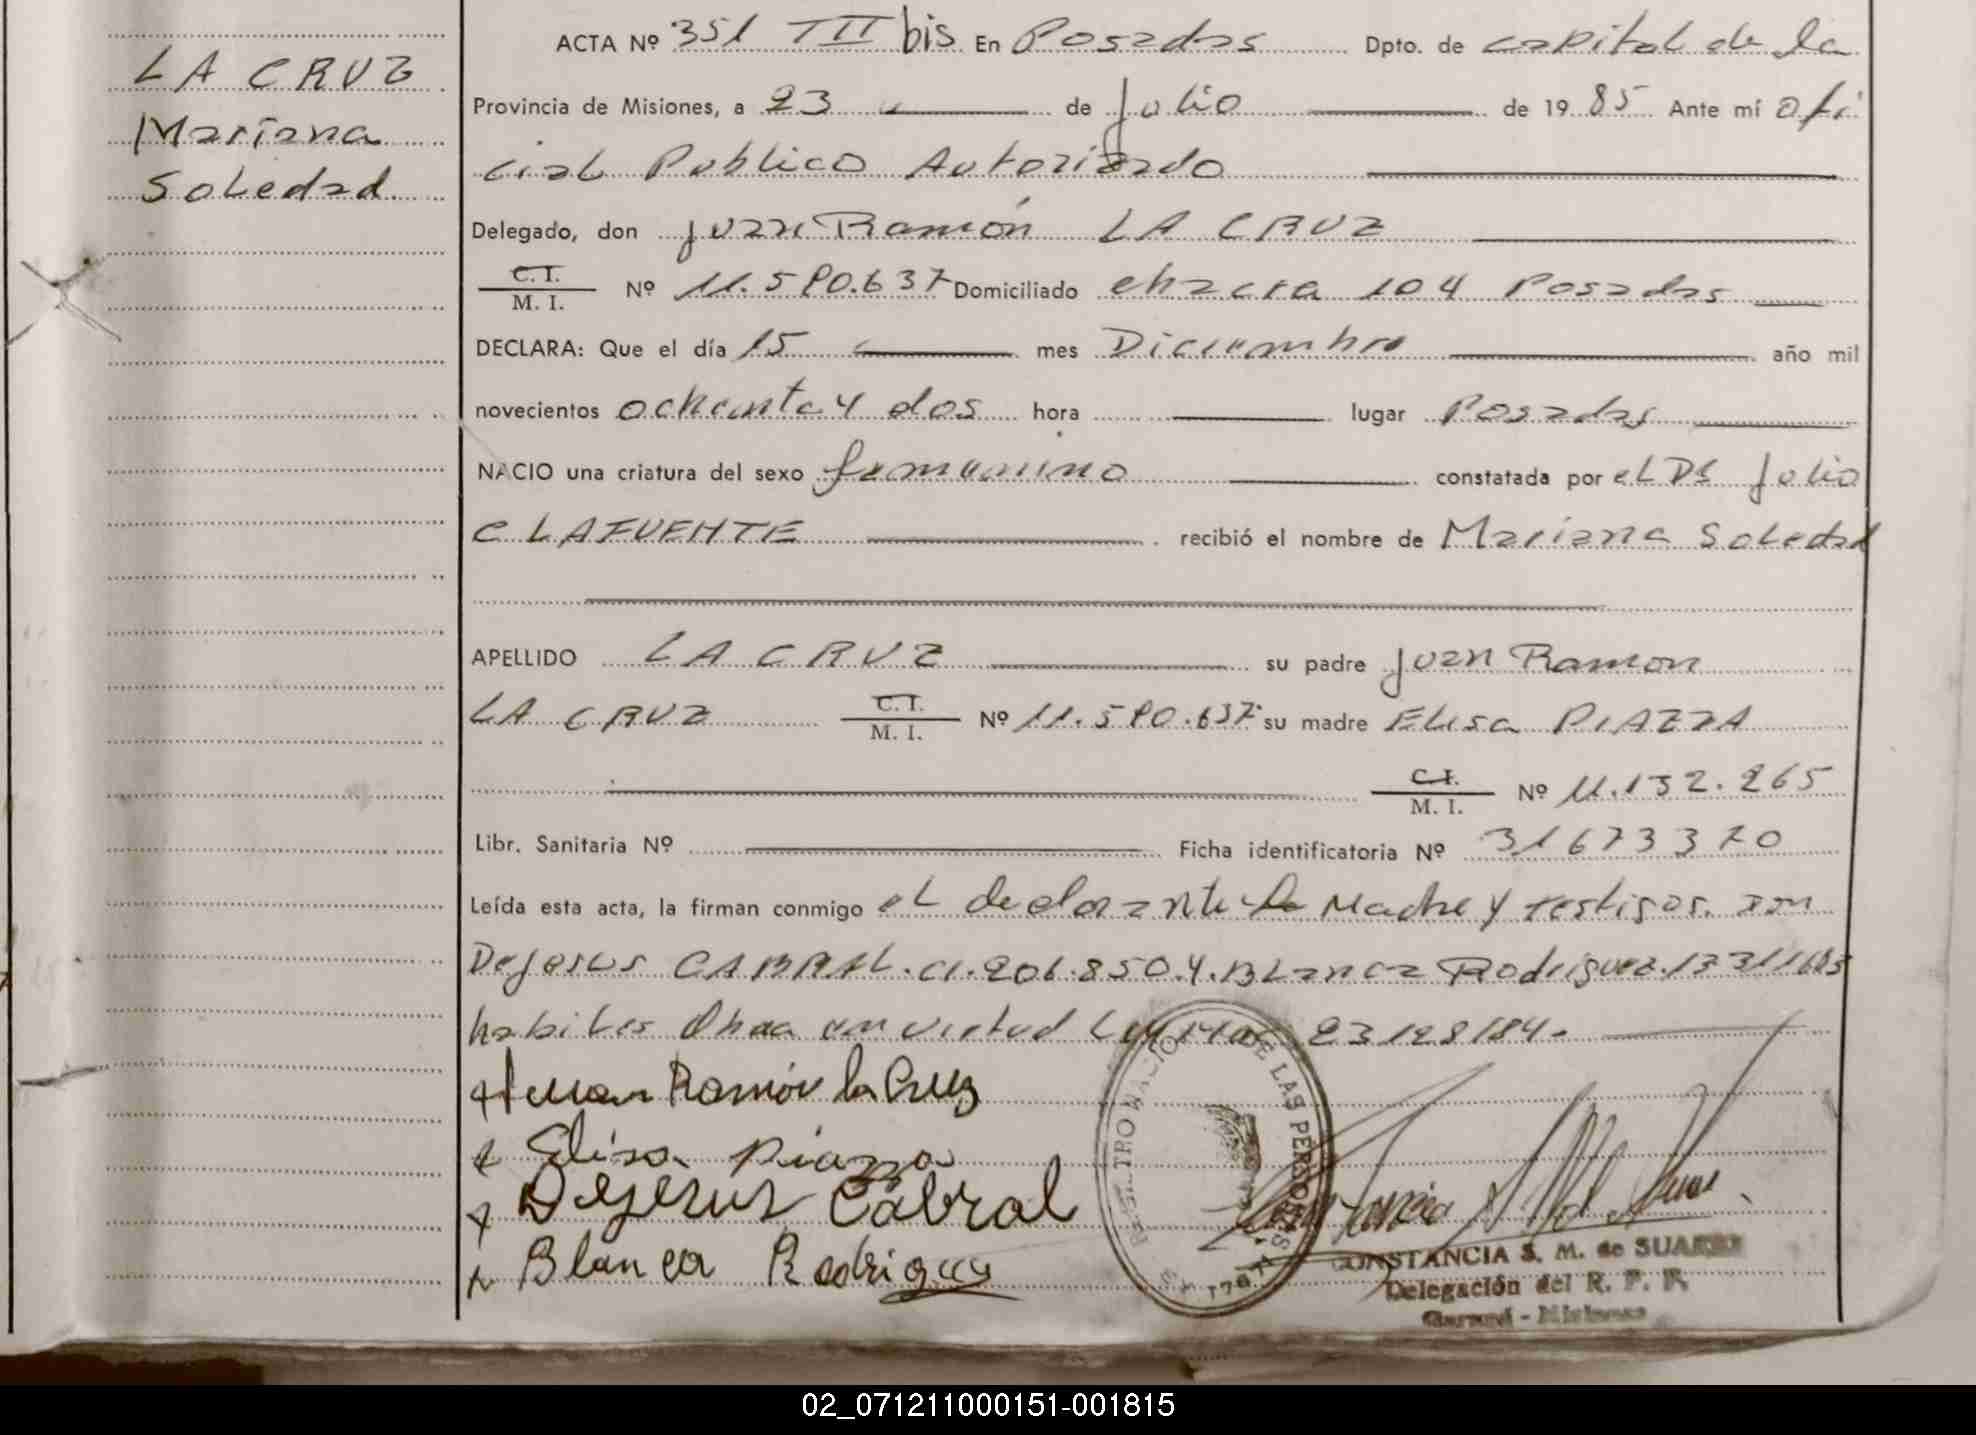 LA CRUZ
Mariana
Soledad
ACTA Nº 351 TII bis En Posadas Dpto. de capital de la
Provincia de Misiones, a 23 de Julio de 1985 Ante mí ofi
cial Publico Autorizado
Delegado, don Juan Ramón LA CRUZ
C. I.
M. I. Nº 11.590.637 Domiciliado chacra 104 Posadas
DECLARA: Que el día 15 mes Diciembre año mil
novecientos ochenta y dos hora lugar Posadas
NACIO una criatura del sexo femenino constatada por el DR Julio
C LAFUENTE recibió el nombre de Mariana Soledad
APELLIDO LA CRUZ su padre Juan Ramon
LA CRUZ C. I. M. I. Nº 11.590.637 su madre Elisa PIAZZA
C. I.
M. I. Nº 11.132.265
Libr. Sanitaria Nº Ficha identificatoria Nº 31673370
Leída esta acta, la firman conmigo el declarante la Madre y testigos. don
Dejesus CABRAL. CI. 206.850. Y. Blanca Rodriguez.
habiles en virtud Ley 23128/84.
Juan Ramón la Cruz
Elisa Piazza
Dejesus Cabral
Blanca Rodriguez
DE LAS PERSONAS
CONSTANCIA S. M. de SUAREZ
Delegación del R. P. P.
02_071211000151-001815